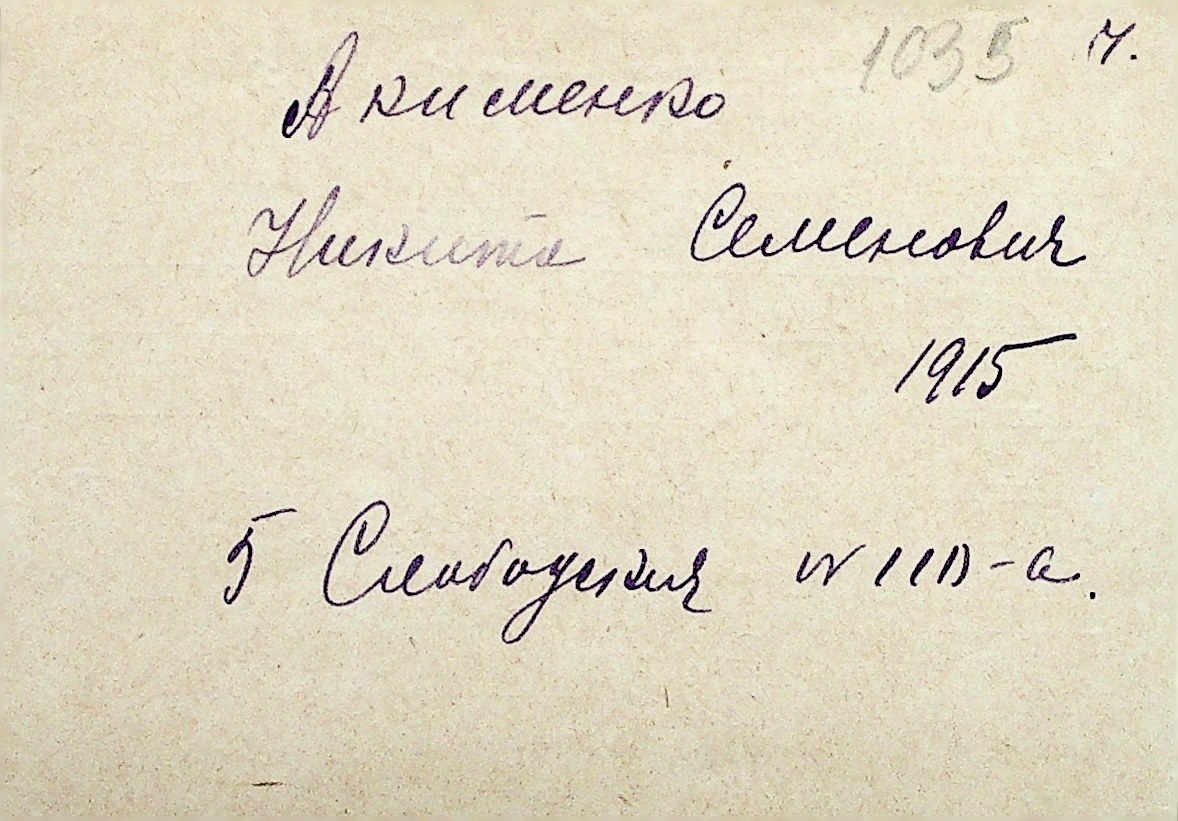 1035 ч.
Акименко
Никита Семенович
1915
5 Слободская